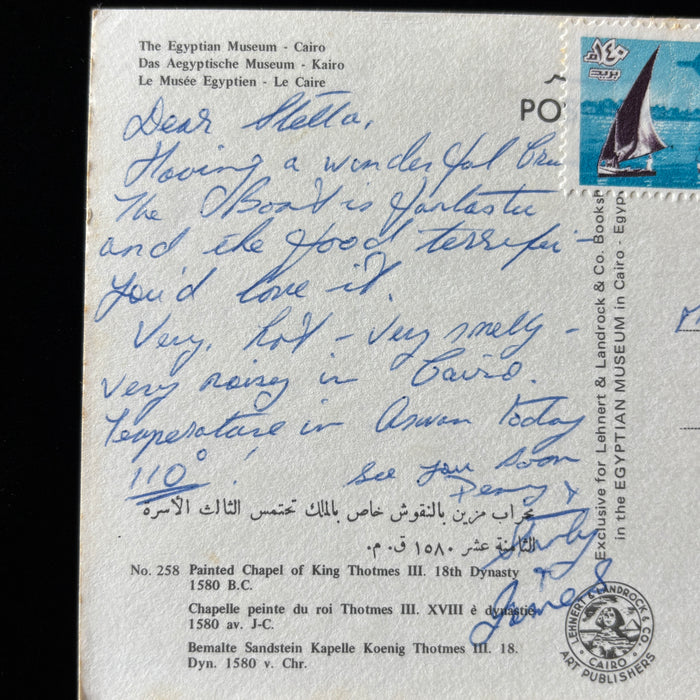 The Egyptian Museum - Cairo
Das Aegyptische Museum - Kairo
Le Musée Egyptien - Le Caire
PO
١٤٠
بريد
Dear Stella,
Having a wonderful
The Boat is fantastic
and the food terrific -
You'd love it.
Very, hot - very smelly -
very noisy in Cairo.
Temperature in Aswan today
110° !
See you soon
Penny &
&
James
محراب مزين بالنقوش خاص بالملك تحتمس الثالث الأسرة
الثامنة عشر ١٥٨٠ ق. م.
No. 258 Painted Chapel of King Thotmes III. 18th Dynasty
1580 B.C.
Chapelle peinte du roi Thotmes III. XVIII è dynastie
1580 av. J-C.
Bemalte Sandstein Kapelle Koenig Thotmes III. 18.
Dyn. 1580 v. Chr.
Exclusive for Lehnert & Landrock & Co. Booksh
in the EGYPTIAN MUSEUM in Cairo - Egyp
LEHNERT & LANDROCK & CO.
CAIRO
ART PUBLISHERS